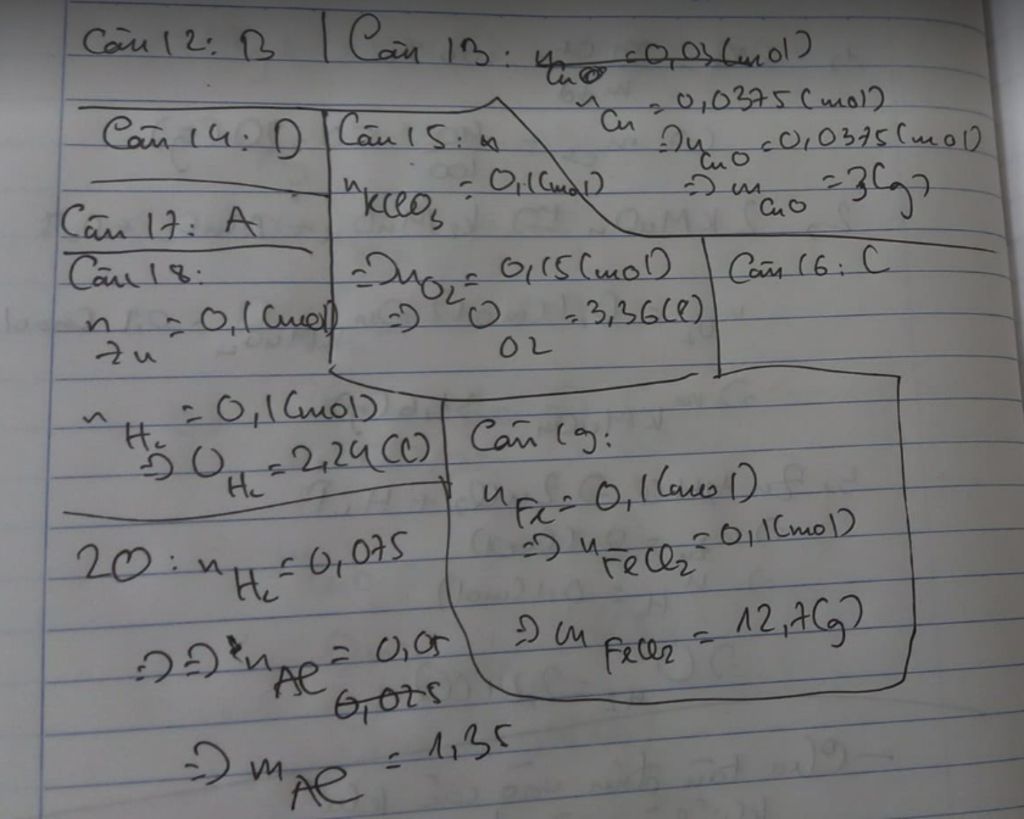 Câu 12: B
Câu 13: n CuO = 0,03 (mol)
n Cu = 0,0375 (mol)
=> n CuO = 0,0375 (mol)
=> m CuO = 3 (g)
Câu 14: D
Câu 15: n
n KClO3 = 0,1 (mol)
=> n O2 = 0,15 (mol)
=> V O2 = 3,36 (l)
Câu 16: C
Câu 17: A
Câu 18:
n Zn = 0,1 (mol)
n H2 = 0,1 (mol)
=> V H2 = 2,24 (l)
Câu 19:
n Fe = 0,1 (mol)
=> n FeCl2 = 0,1 (mol)
=> m FeCl2 = 12,7 (g)
20: n H2 = 0,075
=> => n Al = 0,05
0,025
=> m Al = 1,35